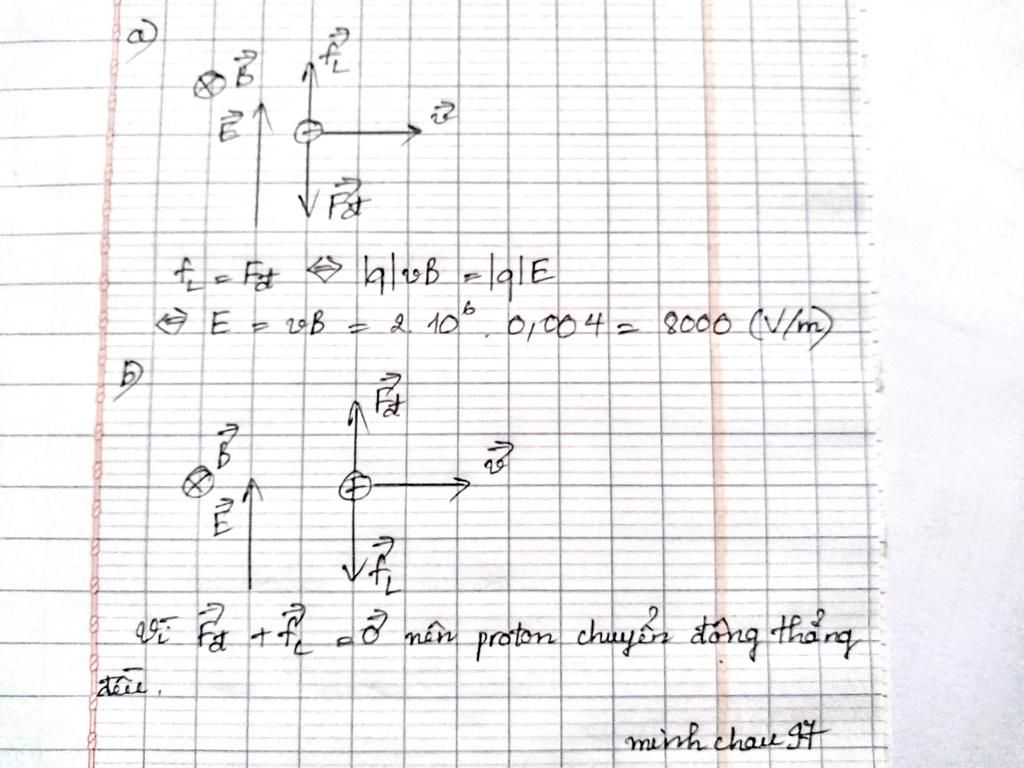 a)
f⃗L
⊗ B⃗
E⃗
⊖ v⃗
F⃗đ
fL = Fđ ⇔ |q|vB = |q|E
⇔ E = vB = 2.10⁶. 0,004 = 8000 (V/m)
b)
F⃗đ
B⃗
⊗ ⊕ v⃗
E⃗
f⃗L
Vì F⃗đ + f⃗L = 0⃗ nên proton chuyển động thẳng
đều.
minh chau 97